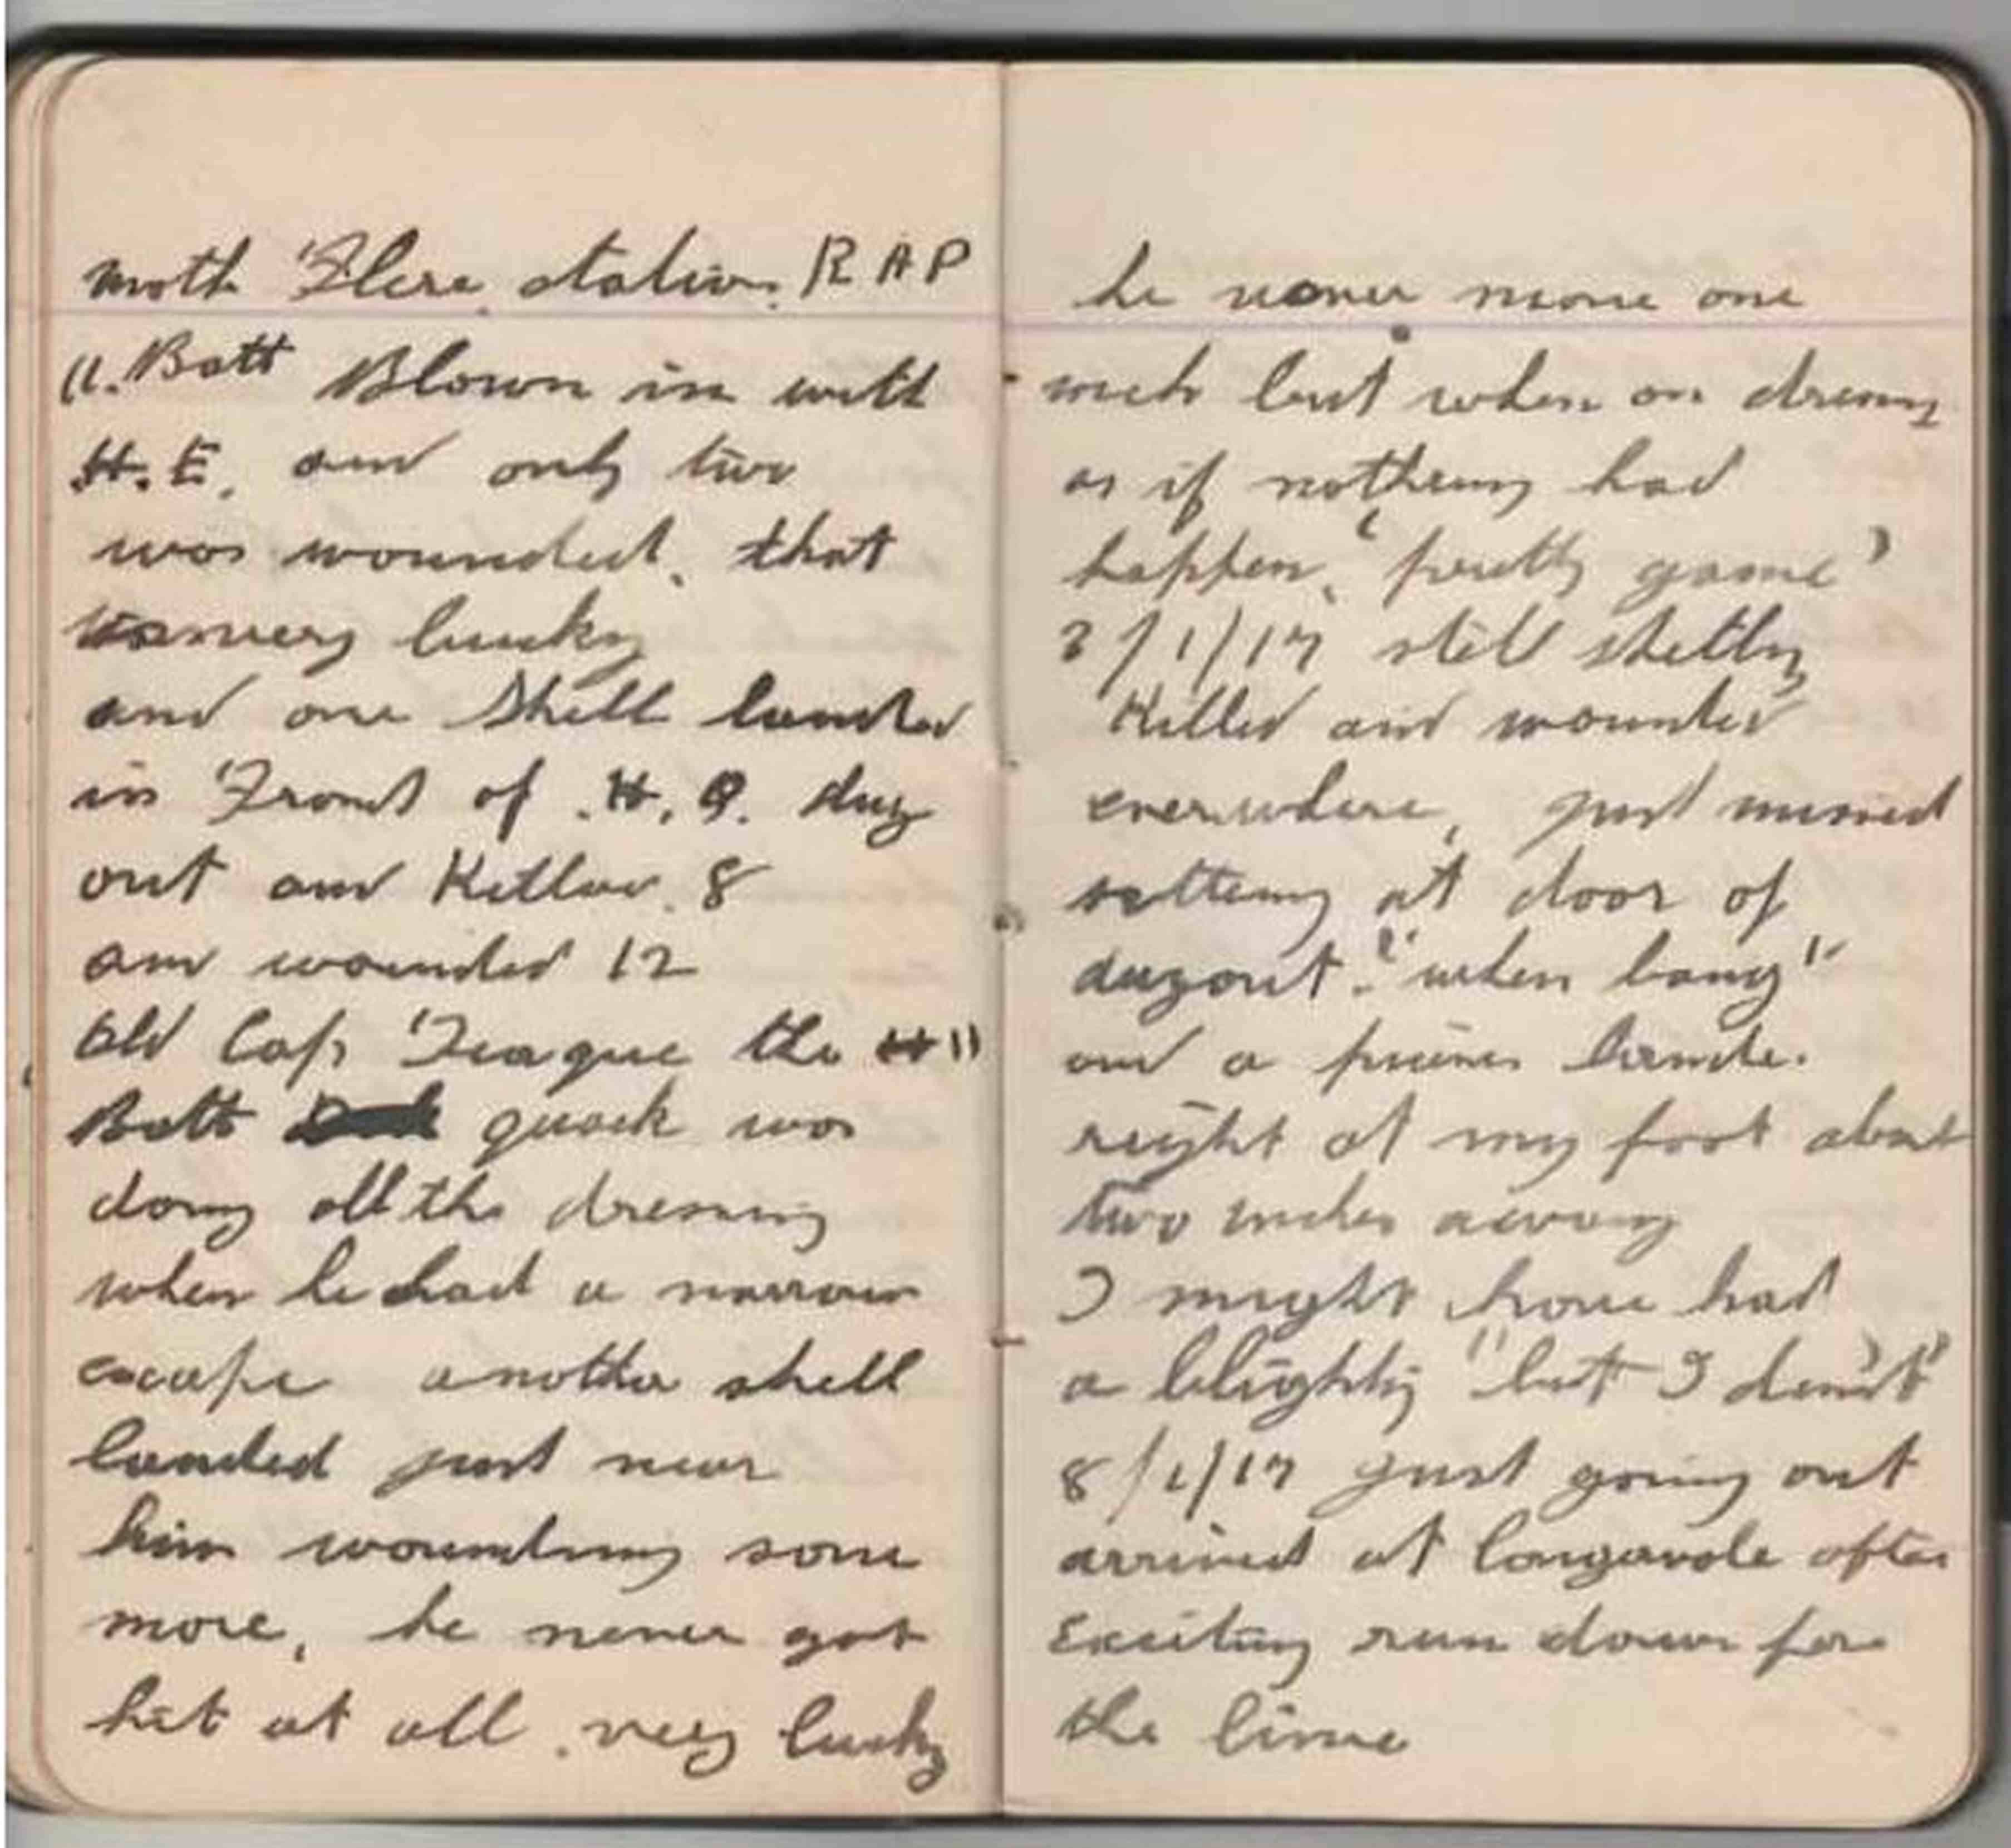 Flers station. R A P
11. Batt Blown in with
H.E. and only two
was wounded, that
very lucky
and one Shell landed
in Front of .H.Q. dug
out and Killed. 8
and wounded 12
Old Cap Teague the 11
Batt quack was
doing all the dressing
when he had a narrow
escape another shell
landed just near
him wounding some
more, he never got
hit at all. very lucky
he never move one
inch but when on dressing
as if nothing had
happen, "pretty game"
/1/17 still shelling
Killed and wounded
everwhere, just missed
sitting at door of
dugout. "when bang"
and a piece lande.
right at my foot about
two inches away
I might have had
a blighty "but I didn't"
8/1/17 Just going out
arrived at Longavale after
Exciting run down for
the line